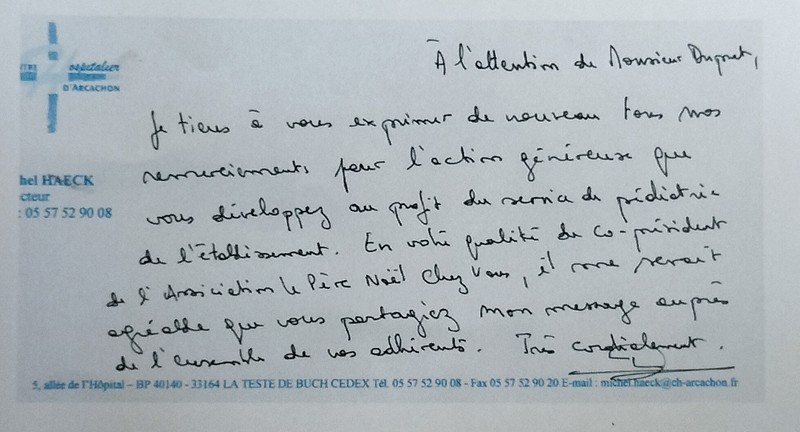 À l'attention de Monsieur
ospitalier
D'ARCACHON
Je tiens à vous exprimer de nouveau tous mes
remerciements pour l'action généreuse que
hel HAECK
cteur
: 05 57 52 90 08
vous développez au profit du service de pédiatrie
de l'établissement. En votre qualité de co-président
de l'Association le Père Noël chez Vous, il me serait
agréable que vous partagiez mon message auprès
de l'ensemble de vos adhérents. Très cordialement.
5, allée de l'Hôpital – BP 40140 - 33164 LA TESTE DE BUCH CEDEX Tél. 05 57 52 90 08 - Fax 05 57 52 90 20 E-mail : michel.haeck@ch-arcachon.fr